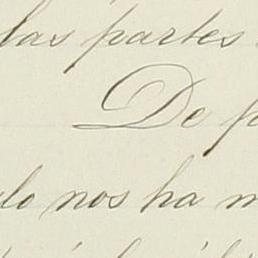 las partes
De p
lo nos ha m